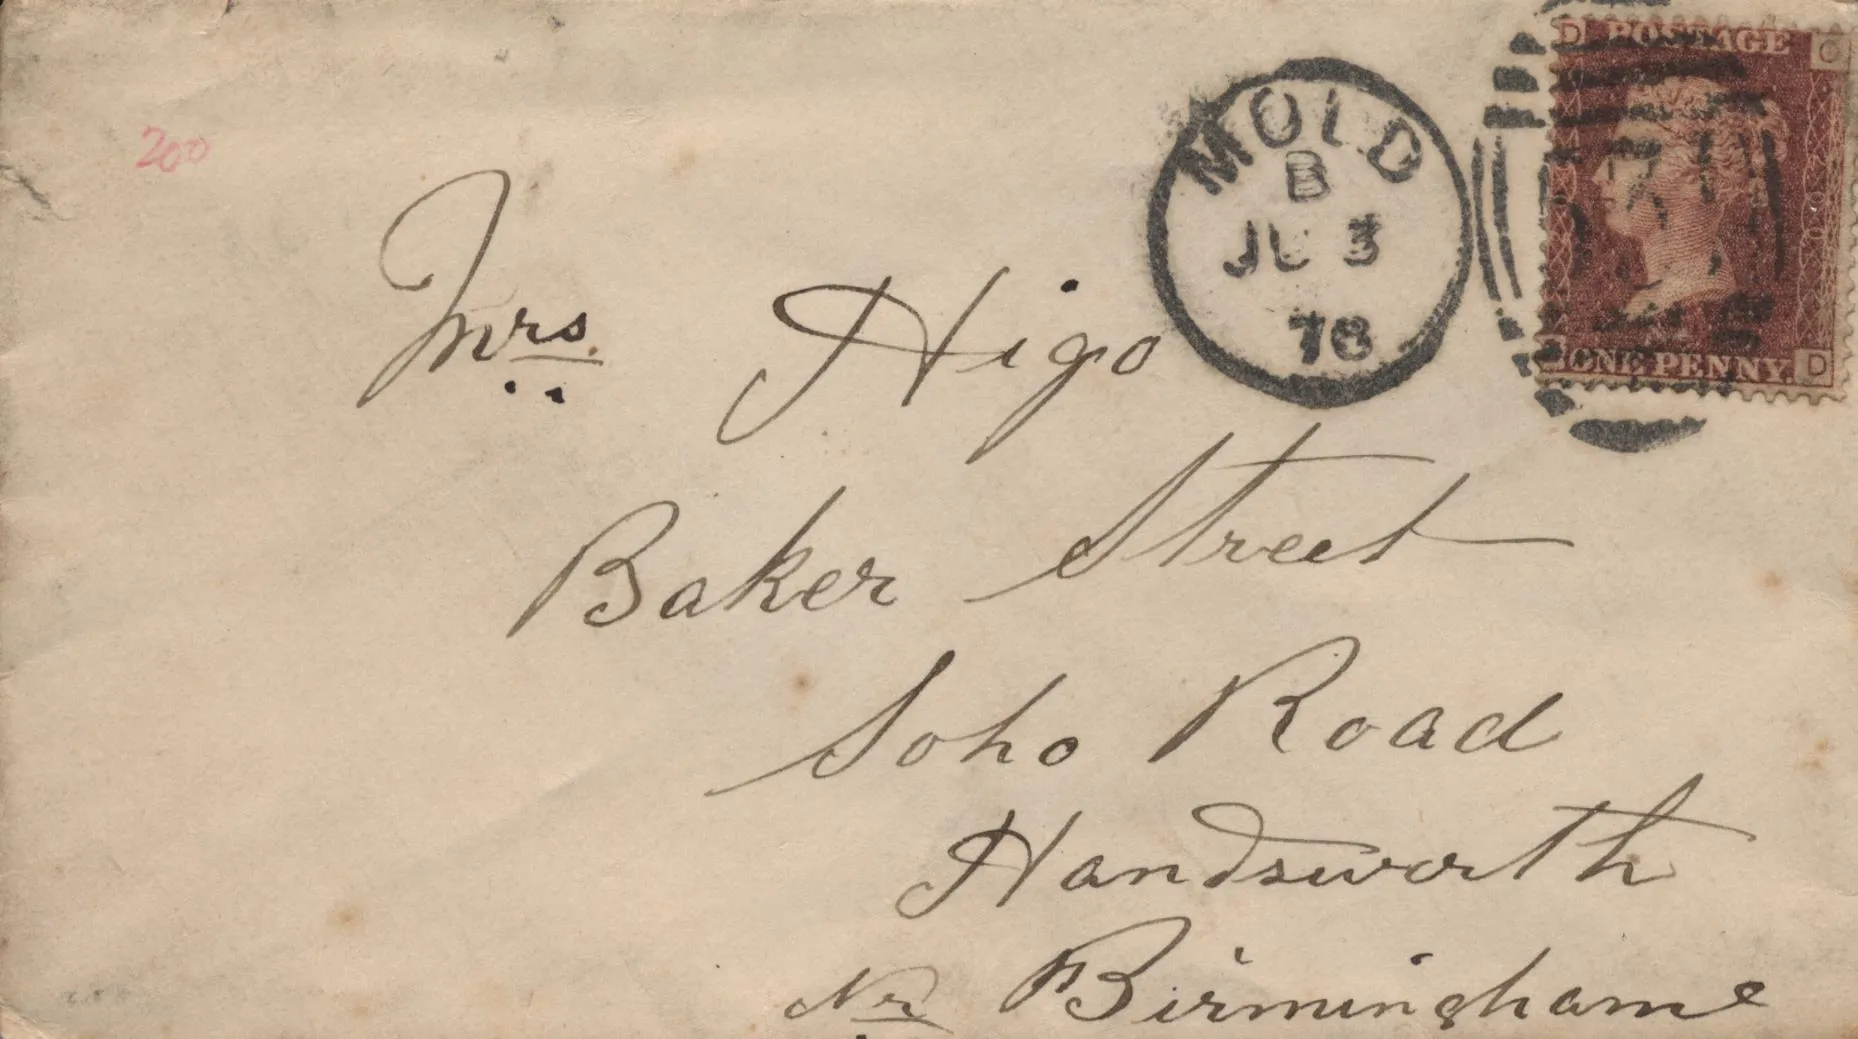 200
MOLD
B
JU 3
78
D POSTAGE C
ONE PENNY. D
Mrs. Higo
Baker Street
Soho Road
Handsworth
Nr Birmingham